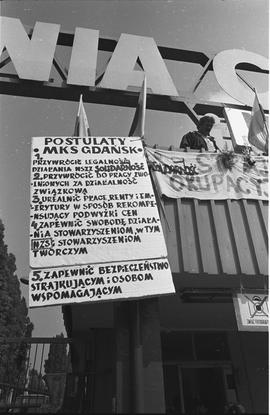 NIA S
POSTULATY
• MKS GDAŃSK •
1.
PRZYWRÓCIĆ LEGALNOŚĆ
DZIAŁANIA NSZZ SOLIDARNOŚĆ
2. PRZYWRÓCIĆ DO PRACY ZWOL
NIONYCH ZA DZIAŁALNOŚĆ
ZWIĄZKOWĄ
3. UREALNIĆ PŁACE, RENTY I EM-
ERYTURY W SPOSÓB REKOMPE-
NSUJĄCY PODWYŻKI CEN
4. ZAPEWNIĆ SWOBODĘ DZIAŁA-
NIA STOWARZYSZENIOM, W TYM
NZS I STOWARZYSZENIOM
TWÓRCZYM
5. ZAPEWNIĆ BEZPIECZEŃSTWO
STRAJKUJĄCYM I OSOBOM
WSPOMAGAJĄCYM
OKUPACY